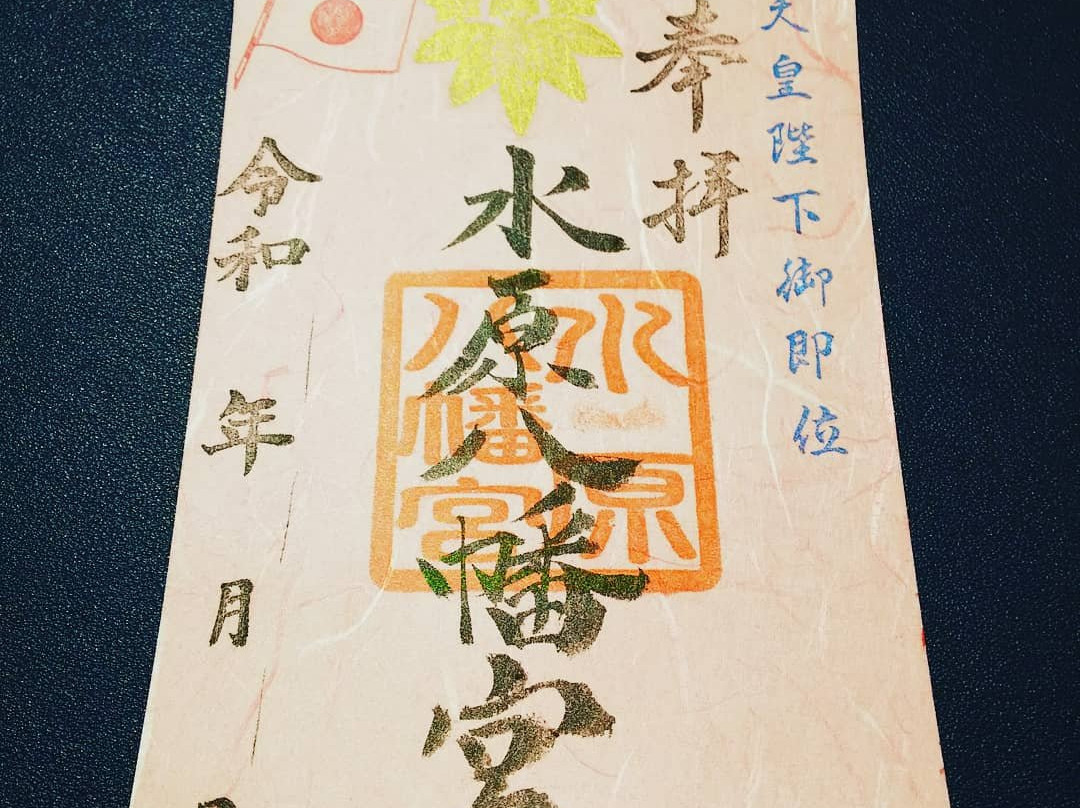 天皇陛下御即位
奉拝
水原八幡宮
水原
八幡宮
令和 年 月